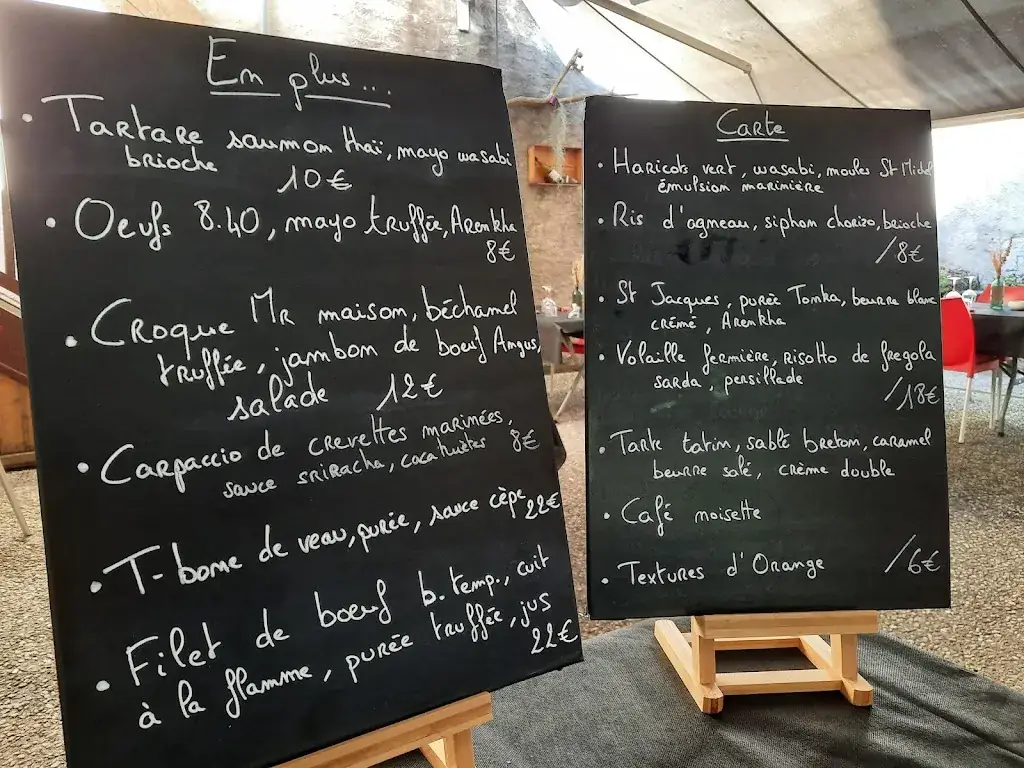 En plus...
• Tartare saumon thaï, mayo wasabi
brioche 10€
• Oeufs 8.40, mayo truffée, Arenkha
8€
• Croque Mr maison, béchamel
truffée, jambon de boeuf Angus,
salade 12€
• Carpaccio de crevettes marinées,
sauce sriracha, cacahuètes 8€
• T-bone de veau, purée, sauce cèpe 22€
• Filet de boeuf b. temp., cuit
à la flamme, purée truffée, jus
22€
Carte
• Haricots vert, wasabi, moules St Michel
émulsion marinière
• Ris d'agneau, siphon chorizo, brioche
/8€
• St Jacques, purée Tonka, beurre blanc
crémé, Arenkha
• Volaille fermière, risotto de fregola
sarda, persillade
/18€
• Tarte tatin, sablé breton, caramel
beurre salé, crème double
• Café noisette
• Textures d'Orange /6€